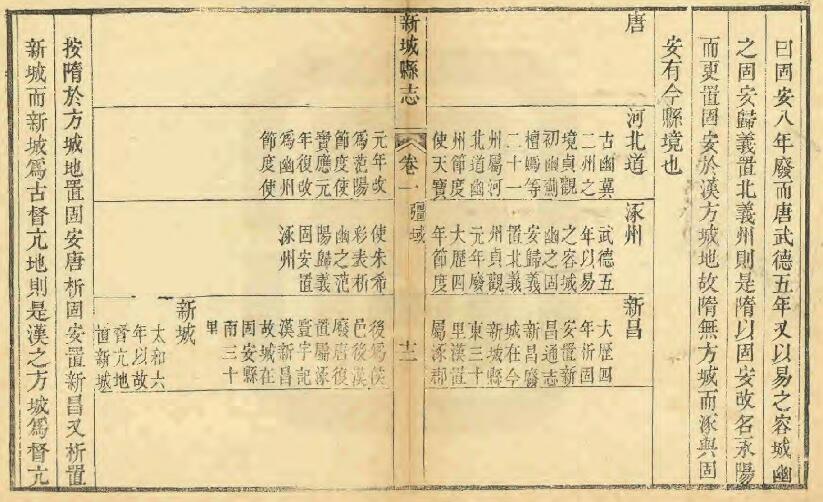 曰固安八年廢而唐武德五年又以易之容城幽
之固安歸義置北義州則是隋以固安改名永陽
而更置固安於漢方城地故隋無方城而涿與固
安有今縣境也
唐
河北道
古幽冀
二州之
境貞觀
初幽薊
檀媯等
二十一
州屬河
北道幽
州節度
使天寶
元年改
爲范陽
節度使
寶應元
年復改
爲幽州
節度使
涿州
武德五
年以易
之容城
幽之固
安歸義
置北義
州貞觀
元年廢
大歷四
年節度
使朱希
彩表析
幽之范
陽歸義
固安置
涿州
新昌
大歷四
年析固
安置新
昌通志
新昌廢
城在今
新城縣
東三十
里漢置
屬涿郡
後爲侯
邑後漢
廢唐復
置屬涿
寰宇記
漢新昌
故城在
固安縣
南三十
里
新城
太和六
年以故
督亢地
置新城
新城縣志
卷一
疆域
十二
按隋於方城地置固安唐析固安置新昌又析置
新城而新城爲古督亢地則是漢之方城爲督亢